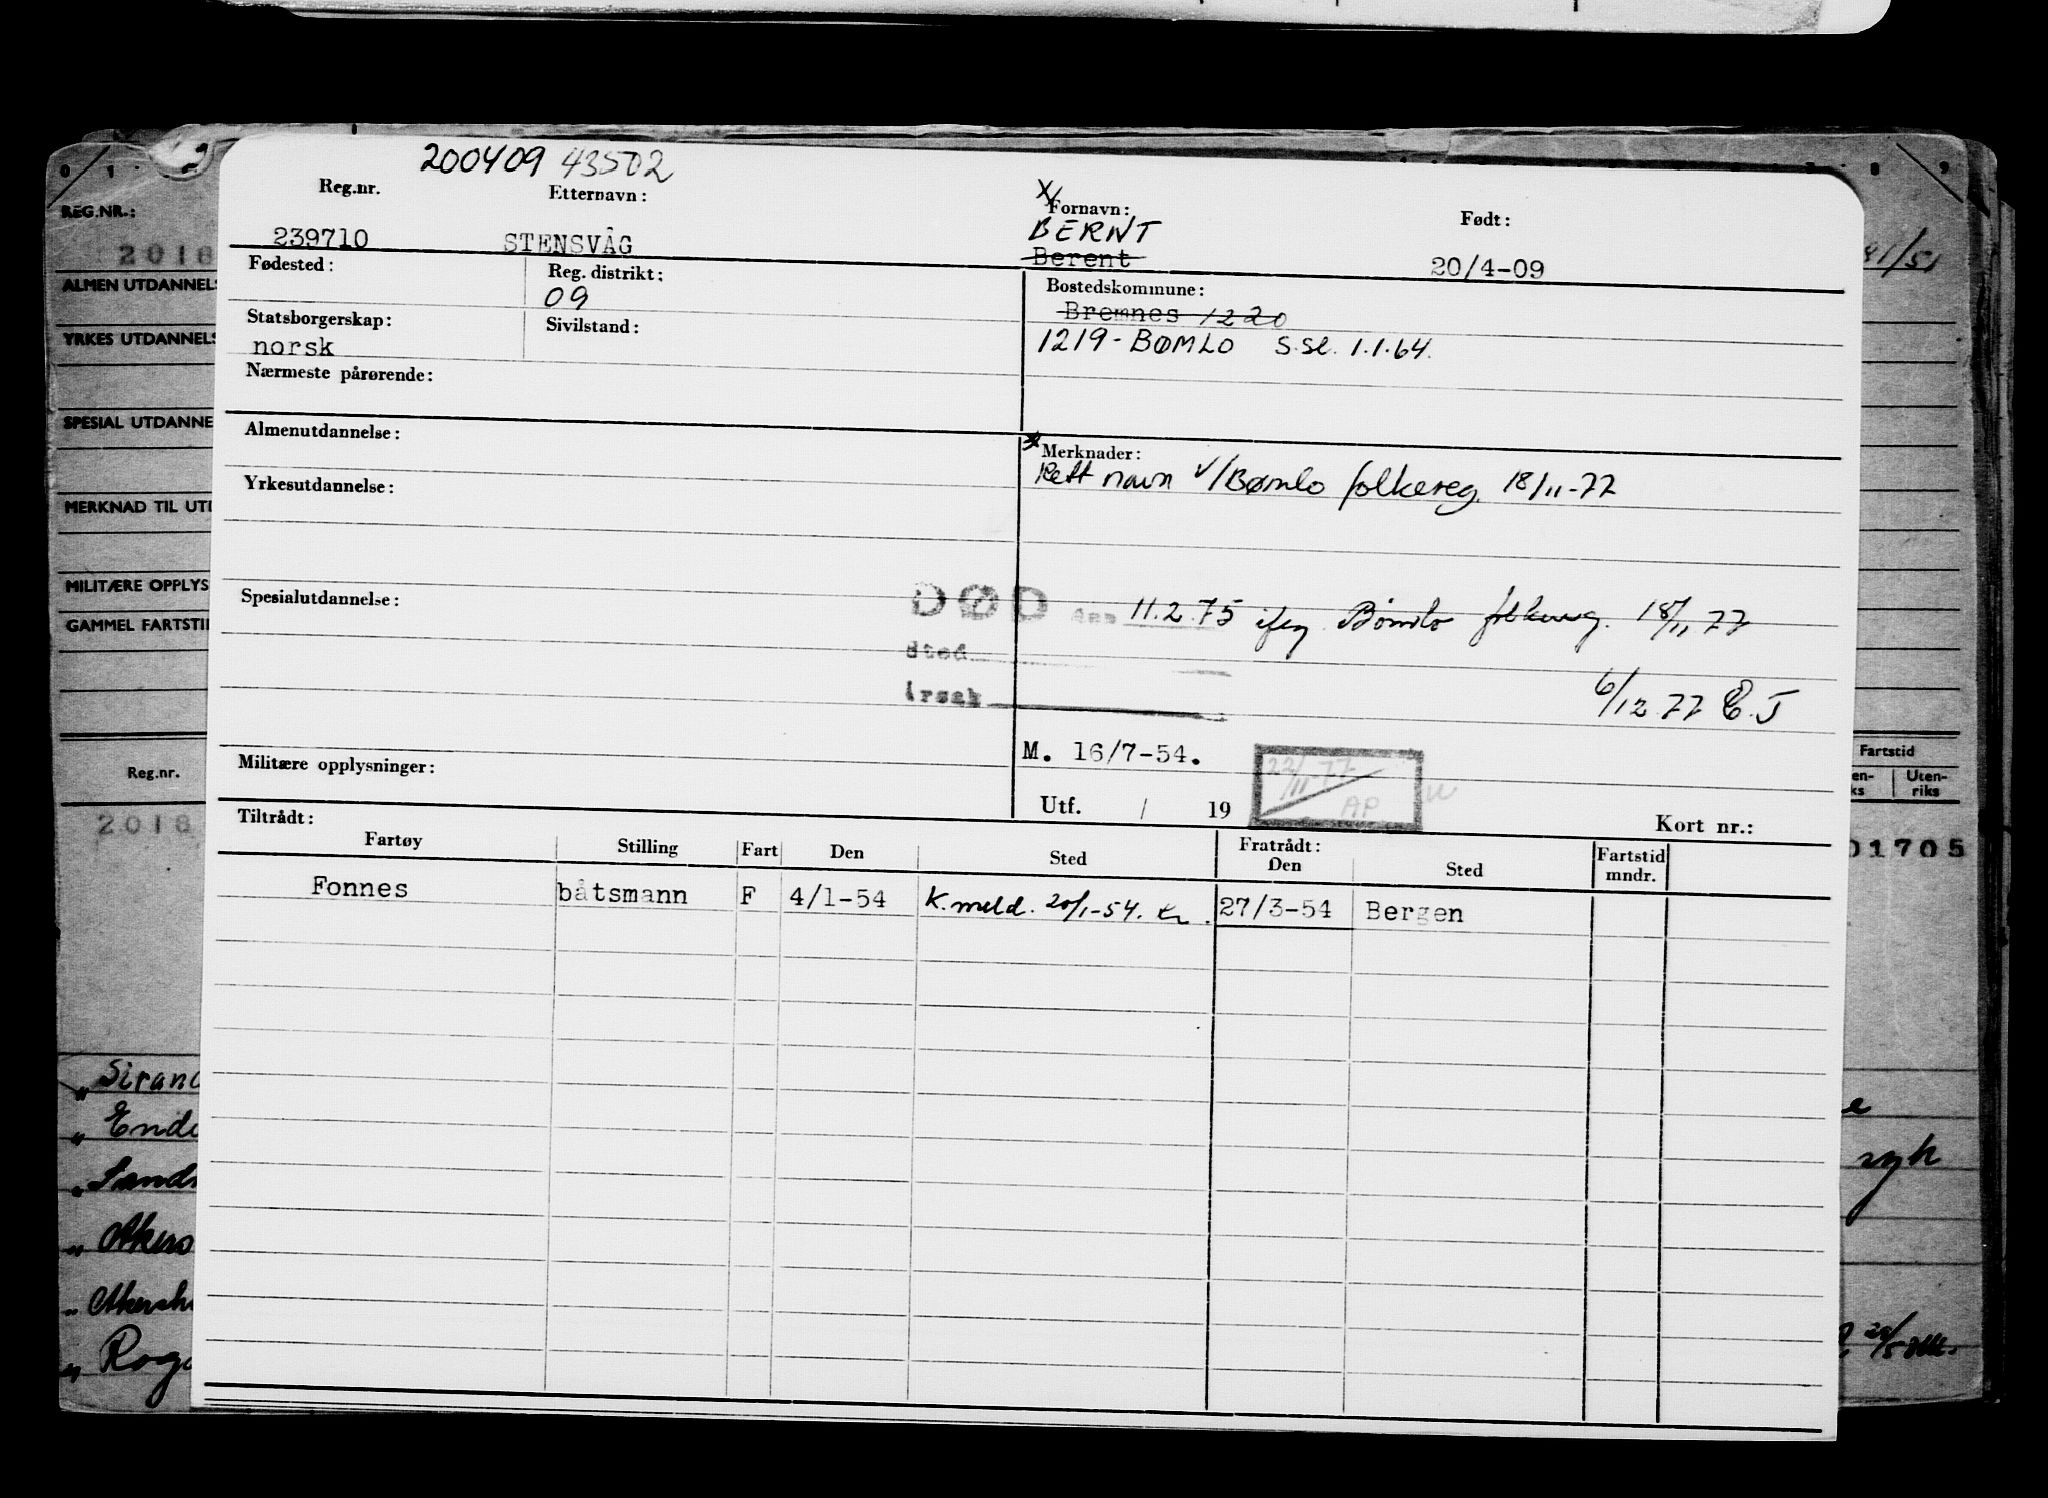 200409 43502
Reg.nr. Etternavn: Fornavn: Født:
BERNT
239710 STENSVÅG Berent 20/4-09
Fødested: Reg. distrikt: Bostedskommune:
09 Bremnes 1220
Statsborgerskap: Sivilstand:
norsk 1219-BØMLO S.Se. 1.1.64.
Nærmeste pårørende:
Almenutdannelse: Merknader:
Rett navn v/Bømlo folkereg. 18/11-77
Yrkesutdannelse:
Spesialutdannelse: DØD den 11.2.75 iføg Bømlo folkereg. 18/11 77
Sted
Årsak 6/12 77 E.J
M. 16/7-54. 22/11-77 AP
Militære opplysninger: Utf. / 19 Kort nr.:
Tiltrådt: Fratrådt:
Fartøy Stilling Fart Den Sted Den Sted Fartstid mndr.
Fonnes båtsmann F 4/1-54 K.meld. 20/1-54. 27/3-54 Bergen
REG.NR.:
2018
ALMEN UTDANNELS
YRKES UTDANNELS
SPESIAL UTDANNE
MERKNAD TIL UTD
MILITÆRE OPPLYS
GAMMEL FARTSTI
Reg.nr.
2018
Akers
Akersh
Roga
41/51
Fartstid
en-
ks
Uten-
riks
01705